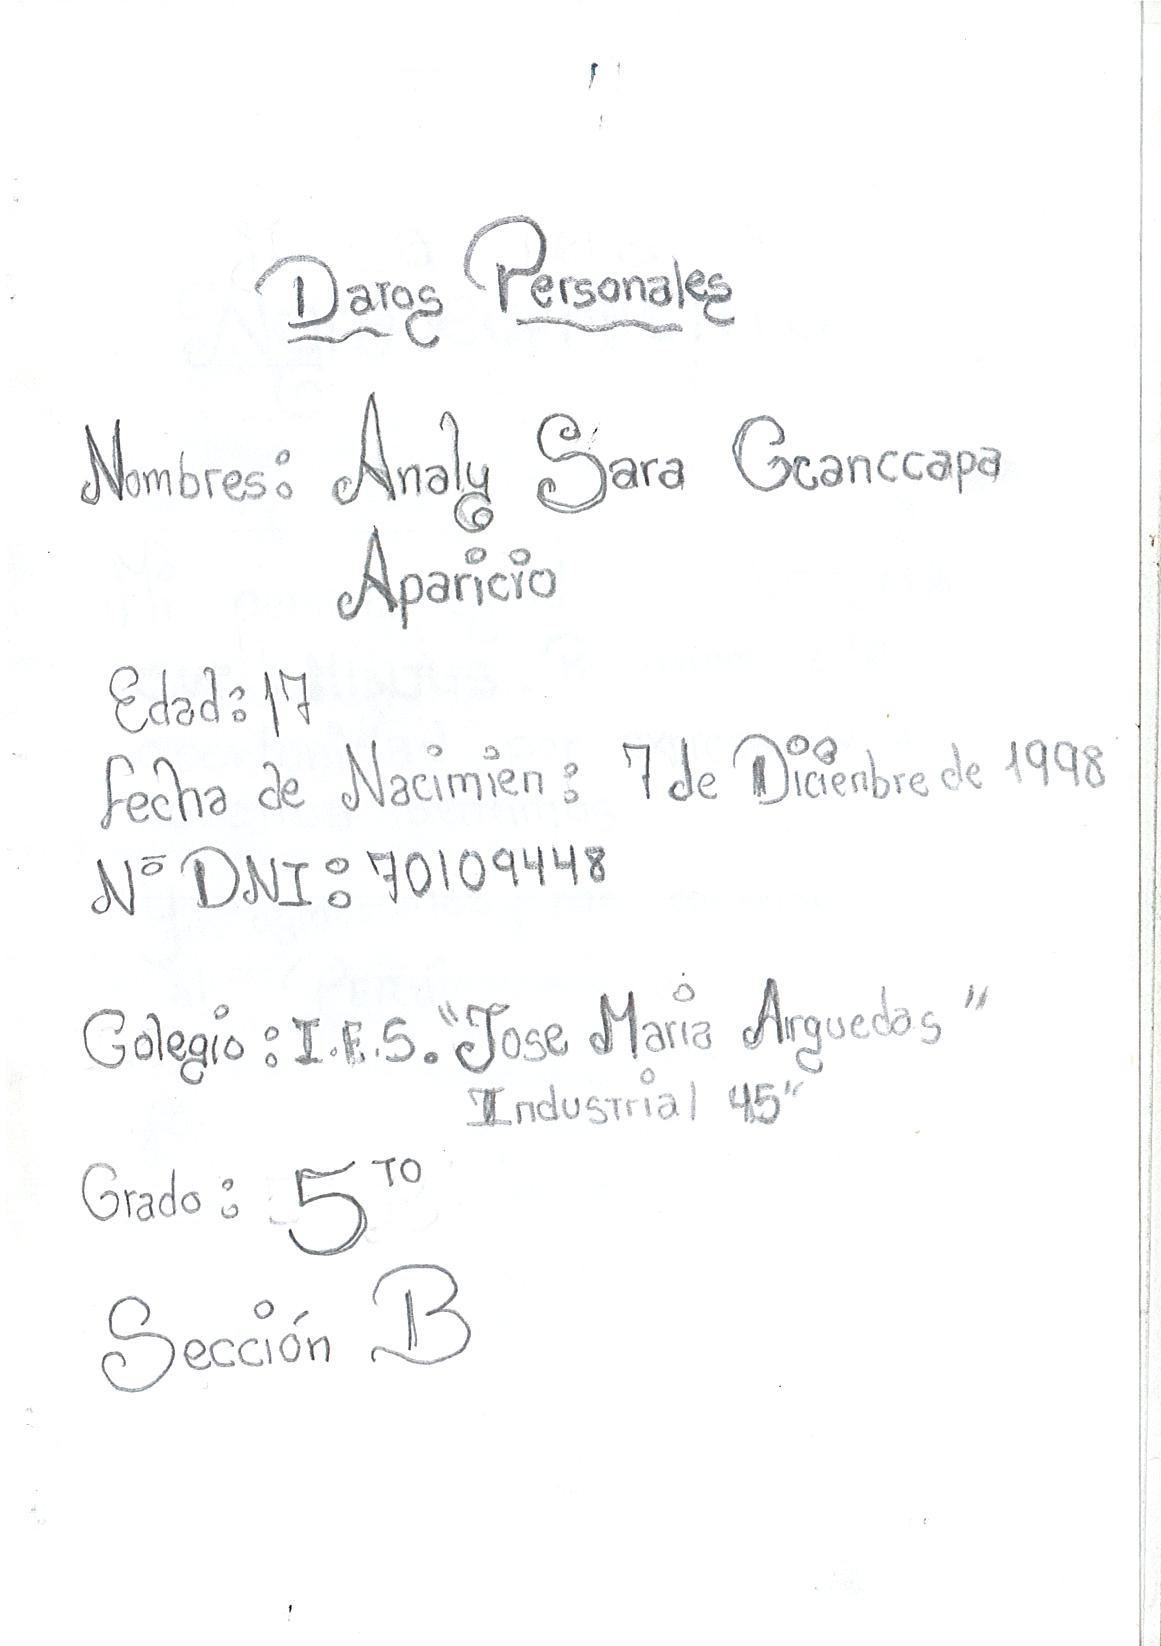 Datos Personales
Nombres: Analy Sara Ccanccapa
Aparicio
Edad: 17
fecha de Nacimien: 7 de Diciembre de 1998
Nº DNI: 70109448
Colegio: I.E.S. "Jose Maria Arguedas"
Industrial 45"
Grado: 5TO
Sección B